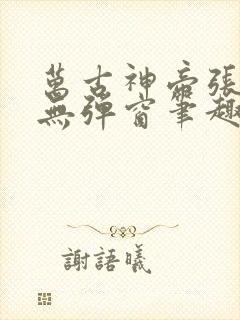 萬古神帝張
無彈窗筆趣
謝語曦